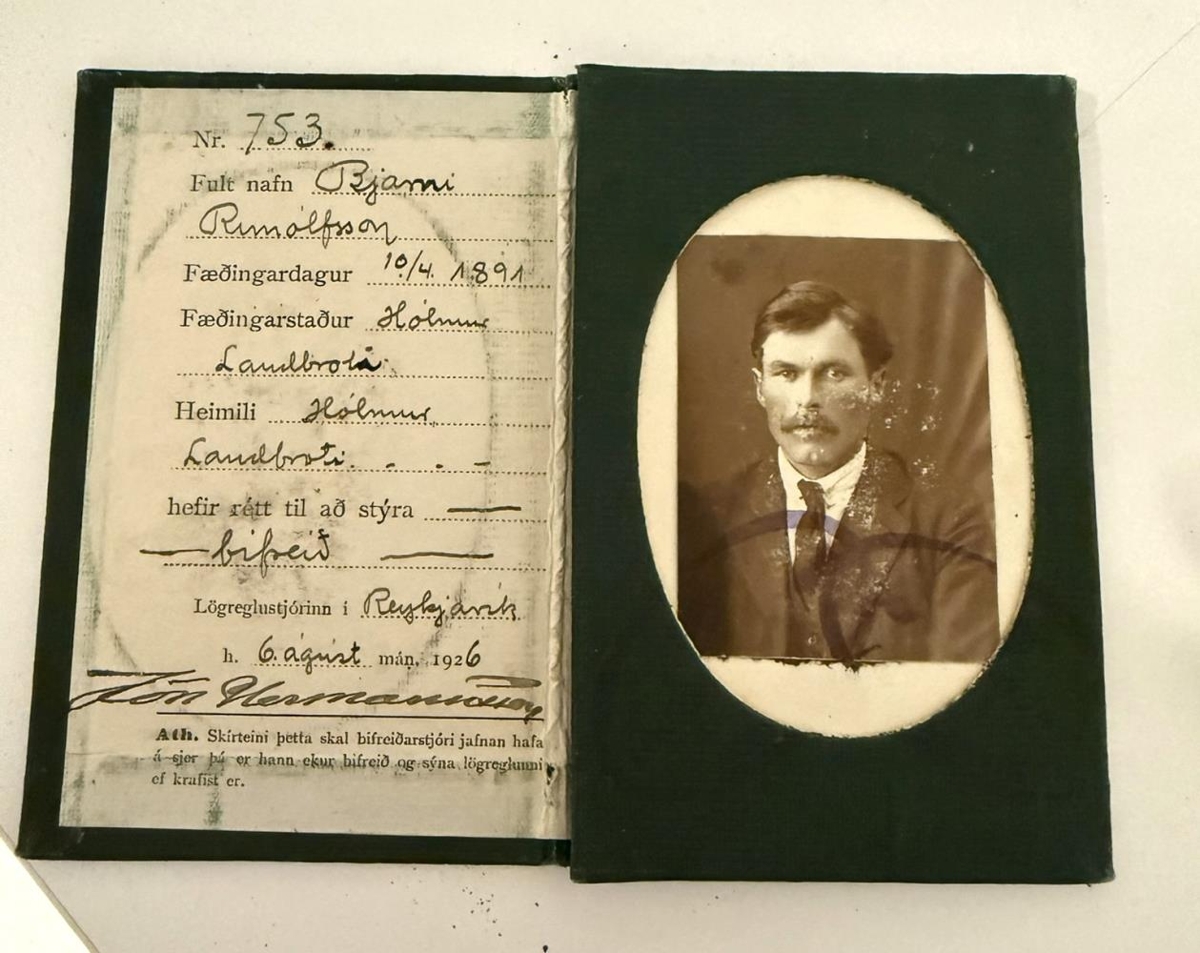 Nr. 753.
Fult nafn Bjarni
Runólfsson
Fæðingardagur 10/4. 1891
Fæðingarstaður Hólmur
Landbroti
Heimili Hólmur
Landbroti. - . -
hefir rétt til að stýra —
— bifreið —
Lögreglustjórinn í Reykjavík
h. 6. ágúst mán. 1926
Jón Hermannsson
Ath. Skírteini þetta skal bifreiðarstjóri jafnan hafa
á sjer þá er hann ekur bifreið og sýna lögreglunni
ef krafist er.